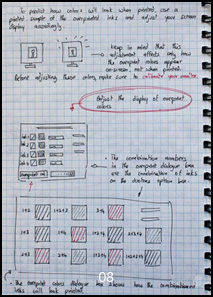 To predict how colors will look when printed, use a
printed sample of the overprinted inks and adjust your screen
display accordingly.
Keep in mind that this
adjustment affects only how
the overprint colors appear
onscreen, not when printed.
Before adjusting these colors, make sure to calibrate your monitor.
Adjust the display of overprint
colors
ink 1
ink 2
ink 3
ink 4
overprint ink
• The combination numbers
in the overprint dialogue box
are the combination of inks
on the duotone option box.
1+2
1+2+3
3+4
1+3
1+4
1+3+4
2+3
1+2+3+4
• The overprint colors dialogue box shows how the combination
inks will look printed.
08